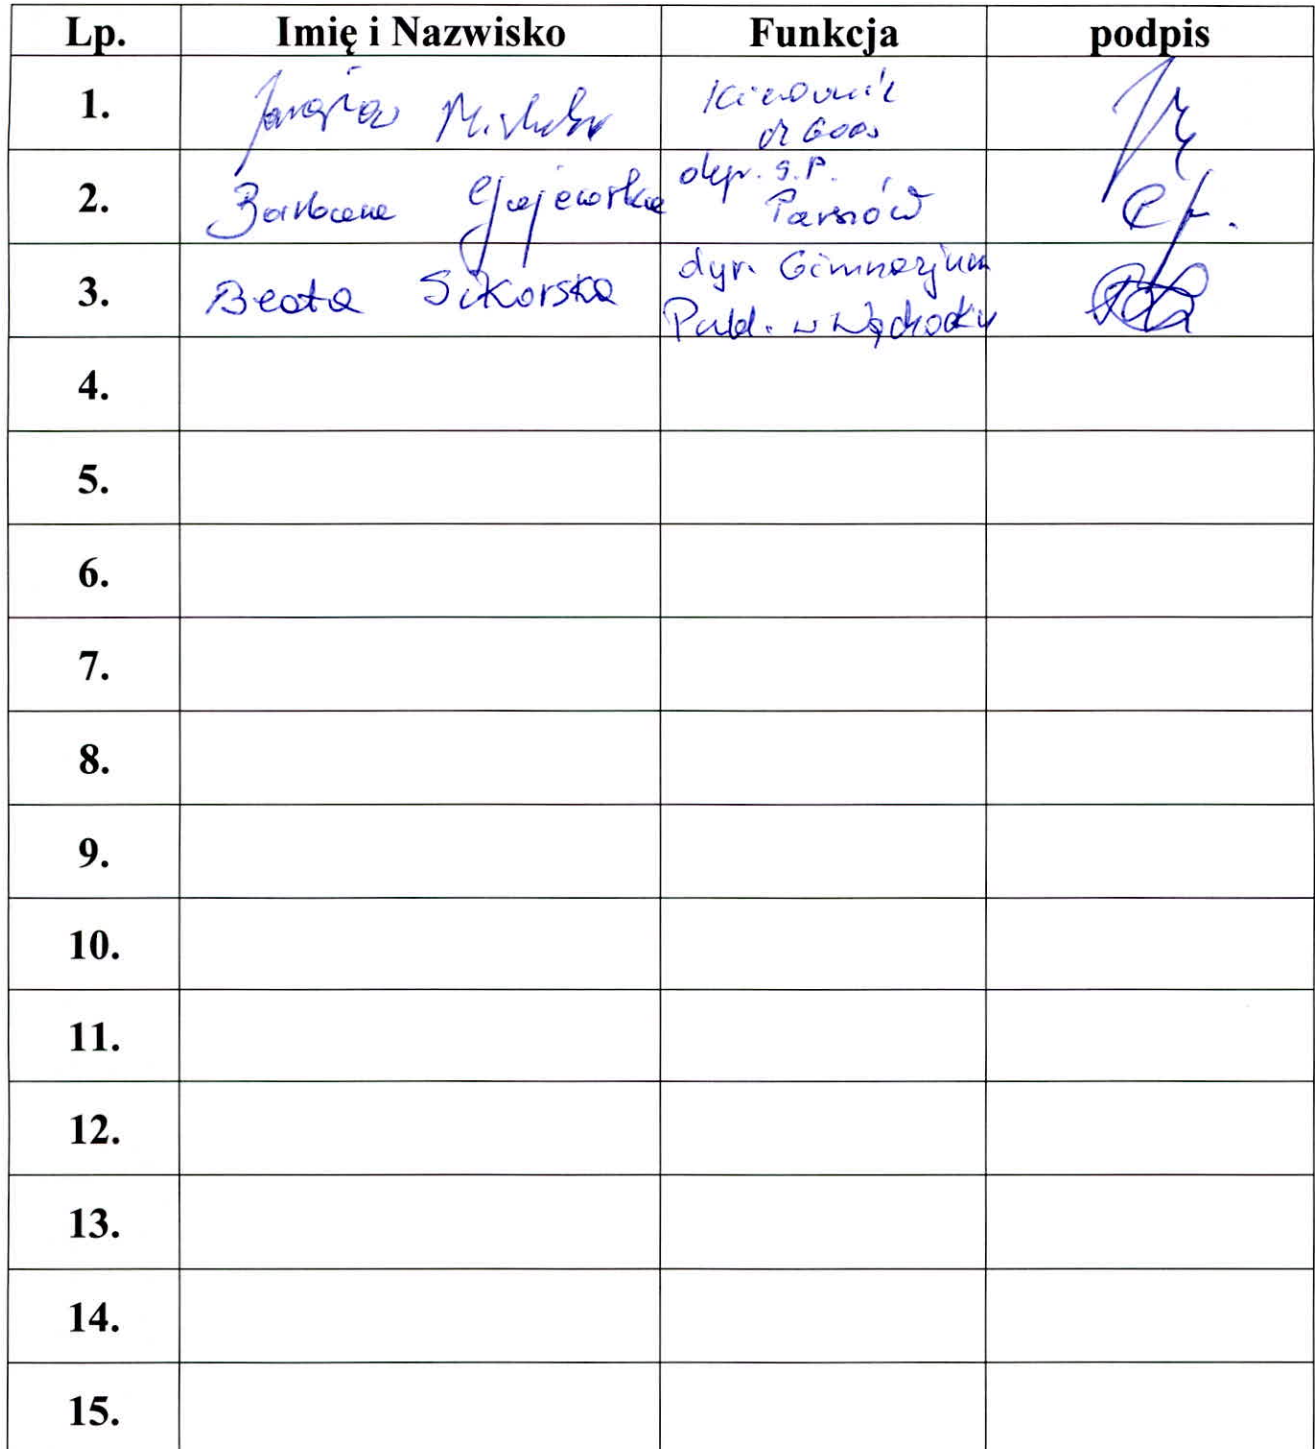 Lp. Imię i Nazwisko Funkcja podpis
1. Kierownik
2. Barbara Gajewska dyr. S.P.
Parszów
3. Beata Sikorska dyr. Gimnazjum
Publ. w Wąchocku
4.
5.
6.
7.
8.
9.
10.
11.
12.
13.
14.
15.